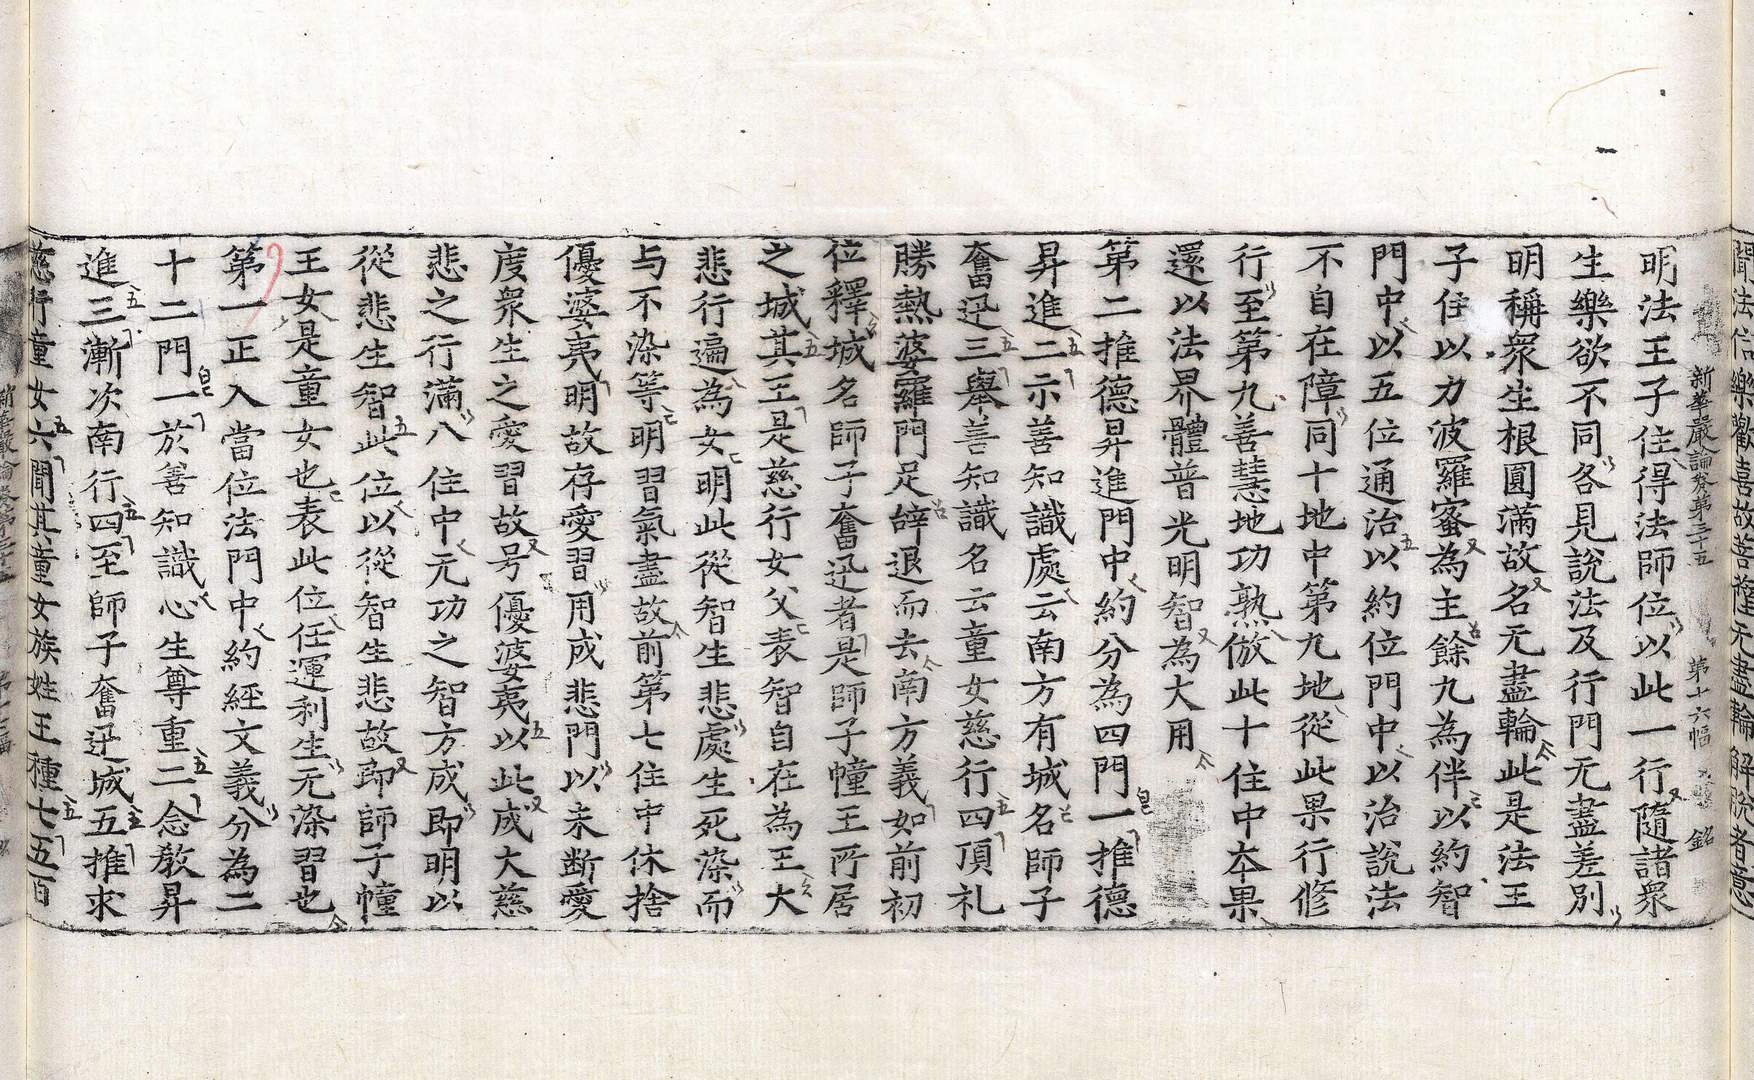 聞法信樂歡喜故菩薩无盡輪解脫者意
新華嚴論卷第三十五 第十六幅 銘
明法王子住得法師位以此一行隨諸衆
生樂欲不同各見說法及行門无盡差別
明稱衆生根圓滿故名无盡輪此是法王
子住以力波羅蜜為主餘九為伴以約智
門中以五位通治以約位門中以治說法
不自在障同十地中第九地從此果行修
行至第九善慧地功熟倣此十住中夲果
還以法界體普光明智為大用
第二推德昇進門中約分為四門一推德
昇進二示善知識處云南方有城名師子
奮迅三舉善知識名云童女慈行四頂礼
勝熱婆羅門足辝退而去南方義如前初
位釋城名師子奮迅者是師子幢王所居
之城其王是慈行女父表智自在為王大
悲行遍為女明此從智生悲處生死㳒而
与不染等明習氣盡故前第七住中休捨
優婆夷明故存愛習用成悲門以未断愛
度衆生之愛習故号優婆夷以此成大慈
悲之行滿八住中元功之智方成即明以
從悲生智此位以從智生悲故即師子幢
王女是童女也表此位任運利生无染習也
第一正入當位法門中約經文義分為二
十二門一於善知識心生尊重二念教昇
進三漸次南行四至師子奮迅城五推求
慈行童女六聞其童女族姓王種七五百